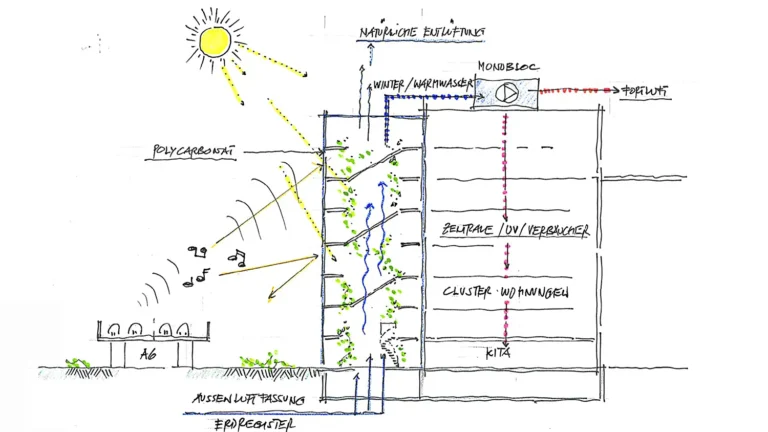 NATÜRLICHE ENTLÜFTUNG
MONOBLOC
WINTER/WARMWASSER
FORTLUFT
POLYCARBONAT
ZENTRALE/UV/VERBRAUCHER
CLUSTER-WOHNUNGEN
A6
KITA
AUSSENLUFTFASSUNG
ERDREGISTER